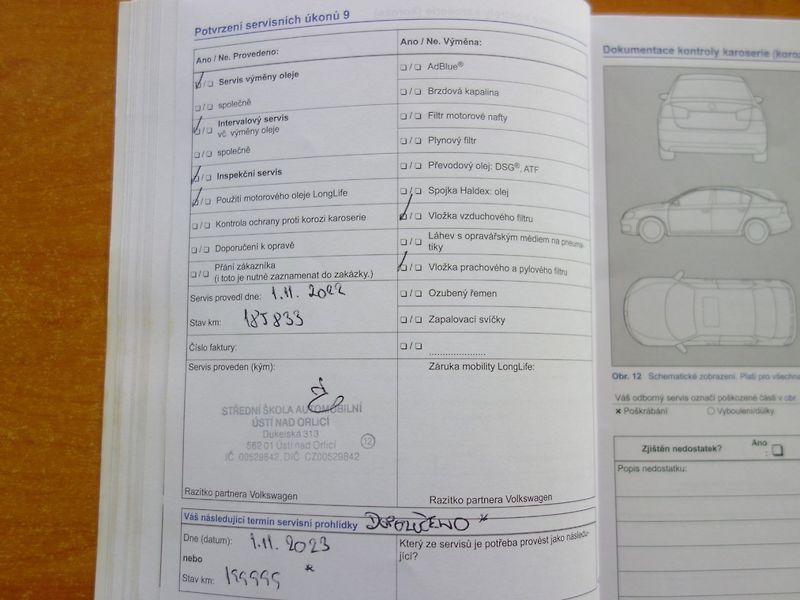 Potvrzení servisních úkonů 9
Ano / Ne. Provedeno:
Servis výměny oleje
společně
Intervalový servis
vč. výměny oleje
společně
Inspekční servis
Použití motorového oleje LongLife
Kontrola ochrany proti korozi karoserie
Doporučení k opravě
Přání zákazníka
(i toto je nutné zaznamenat do zakázky.)
Servis provedl dne: 1.11. 2022
Stav km: 185833
Číslo faktury:
Servis proveden (kým):
STŘEDNÍ ŠKOLA AUTOMOBILNÍ
ÚSTÍ NAD ORLICÍ
Dukelská 313
562 01 Ústí nad Orlicí
IČ 00529842, DIČ CZ00529842
12
Razítko partnera Volkswagen
Ano / Ne. Výměna:
AdBlue®
Brzdová kapalina
Filtr motorové nafty
Plynový filtr
Převodový olej: DSG®, ATF
Spojka Haldex: olej
Vložka vzduchového filtru
Láhev s opravářským médiem na pneuma-
tiky
Vložka prachového a pylového filtru
Ozubený řemen
Zapalovací svíčky
Záruka mobility LongLife:
Razítko partnera Volkswagen
Váš následující termín servisní prohlídky DOPORUČENO *
Dne (datum): 1.11. 2023
nebo *
Stav km: 199999
Který ze servisů je potřeba provést jako následu-
jící?
Dokumentace kontroly karoserie (koroz
Obr. 12 Schematické zobrazení. Platí pro všechna
Váš odborný servis označí poškozené části v obr.
× Poškrábání
Vyboulení/důlky
Zjištěn nedostatek? Ano
:
Popis nedostatku: